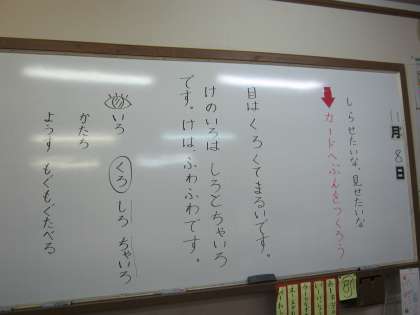 11月8日
しらせたいな、見せたいな
カードへぶんをつくろう
目はくろくてまるいです。
けのいろはしろとちゃいろ
です。けはふわふわです。
いろ くろ しろ ちゃいろ
かたち
ようす もぐもぐたべる